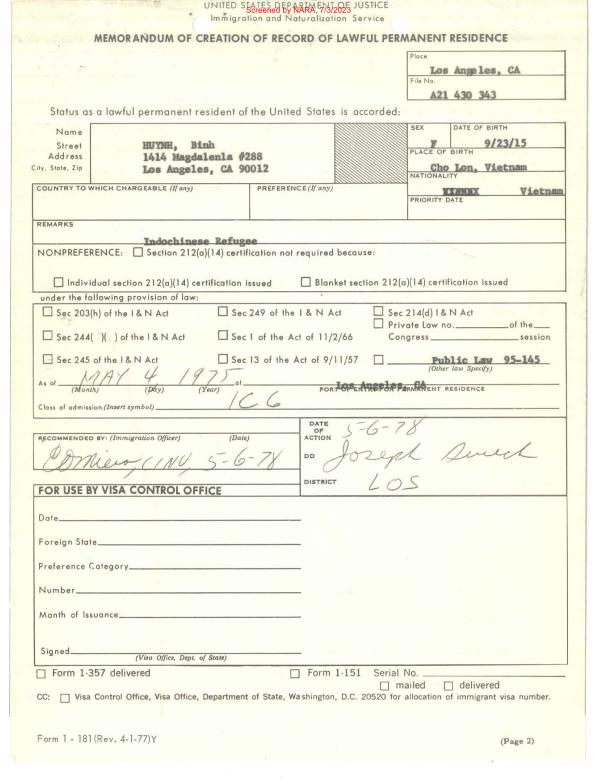 UNITED STATES DEPARTMENT OF JUSTICE
Screened by NARA, 7/3/2023
Immigration and Naturalization Service
MEMORANDUM OF CREATION OF RECORD OF LAWFUL PERMANENT RESIDENCE
Place
Los Angeles, CA
File No.
A21 430 343
Status as a lawful permanent resident of the United States is accorded:
Name
Street
Address
City, State, Zip
HUYNH, Binh
1414 Magdalenla #288
Los Angeles, CA 90012
SEX DATE OF BIRTH
F 9/23/15
PLACE OF BIRTH
Cho Lon, Vietnam
NATIONALITY
Vietnam
COUNTRY TO WHICH CHARGEABLE (If any) PREFERENCE (If any)
PRIORITY DATE
REMARKS
Indochinese Refugee
NONPREFERENCE: Section 212(a)(14) certification not required because:
Individual section 212(a)(14) certification issued Blanket section 212(a)(14) certification issued
under the following provision of law:
Sec 203(h) of the I & N Act Sec 249 of the I & N Act Sec 214(d) I & N Act
Private Law no. of the
Sec 244( )( ) of I & N Act Sec 1 of the Act of 11/2/66 Congress session
Sec 245 of the I & N Act Sec 13 of the Act of 9/11/57 Public Law 95-145
(Other law Specify)
As of MAY 4 1975 at Los Angeles, CA
(Month) (Day) (Year) PORT OF ENTRY FOR PERMANENT RESIDENCE
Class of admission (Insert symbol) IC6
RECOMMENDED BY: (Immigration Officer) (Date)
5-6-78
DATE OF ACTION 5-6-78
DD Joseph
DISTRICT LOS
FOR USE BY VISA CONTROL OFFICE
Date
Foreign State
Preference Category
Number
Month of Issuance
Signed
(Visa Office, Dept. of State)
Form 1-357 delivered Form 1-151 Serial No.
mailed delivered
CC: Visa Control Office, Visa Office, Department of State, Washington, D.C. 20520 for allocation of immigrant visa number.
Form 1 - 181 (Rev. 4-1-77)Y (Page 2)